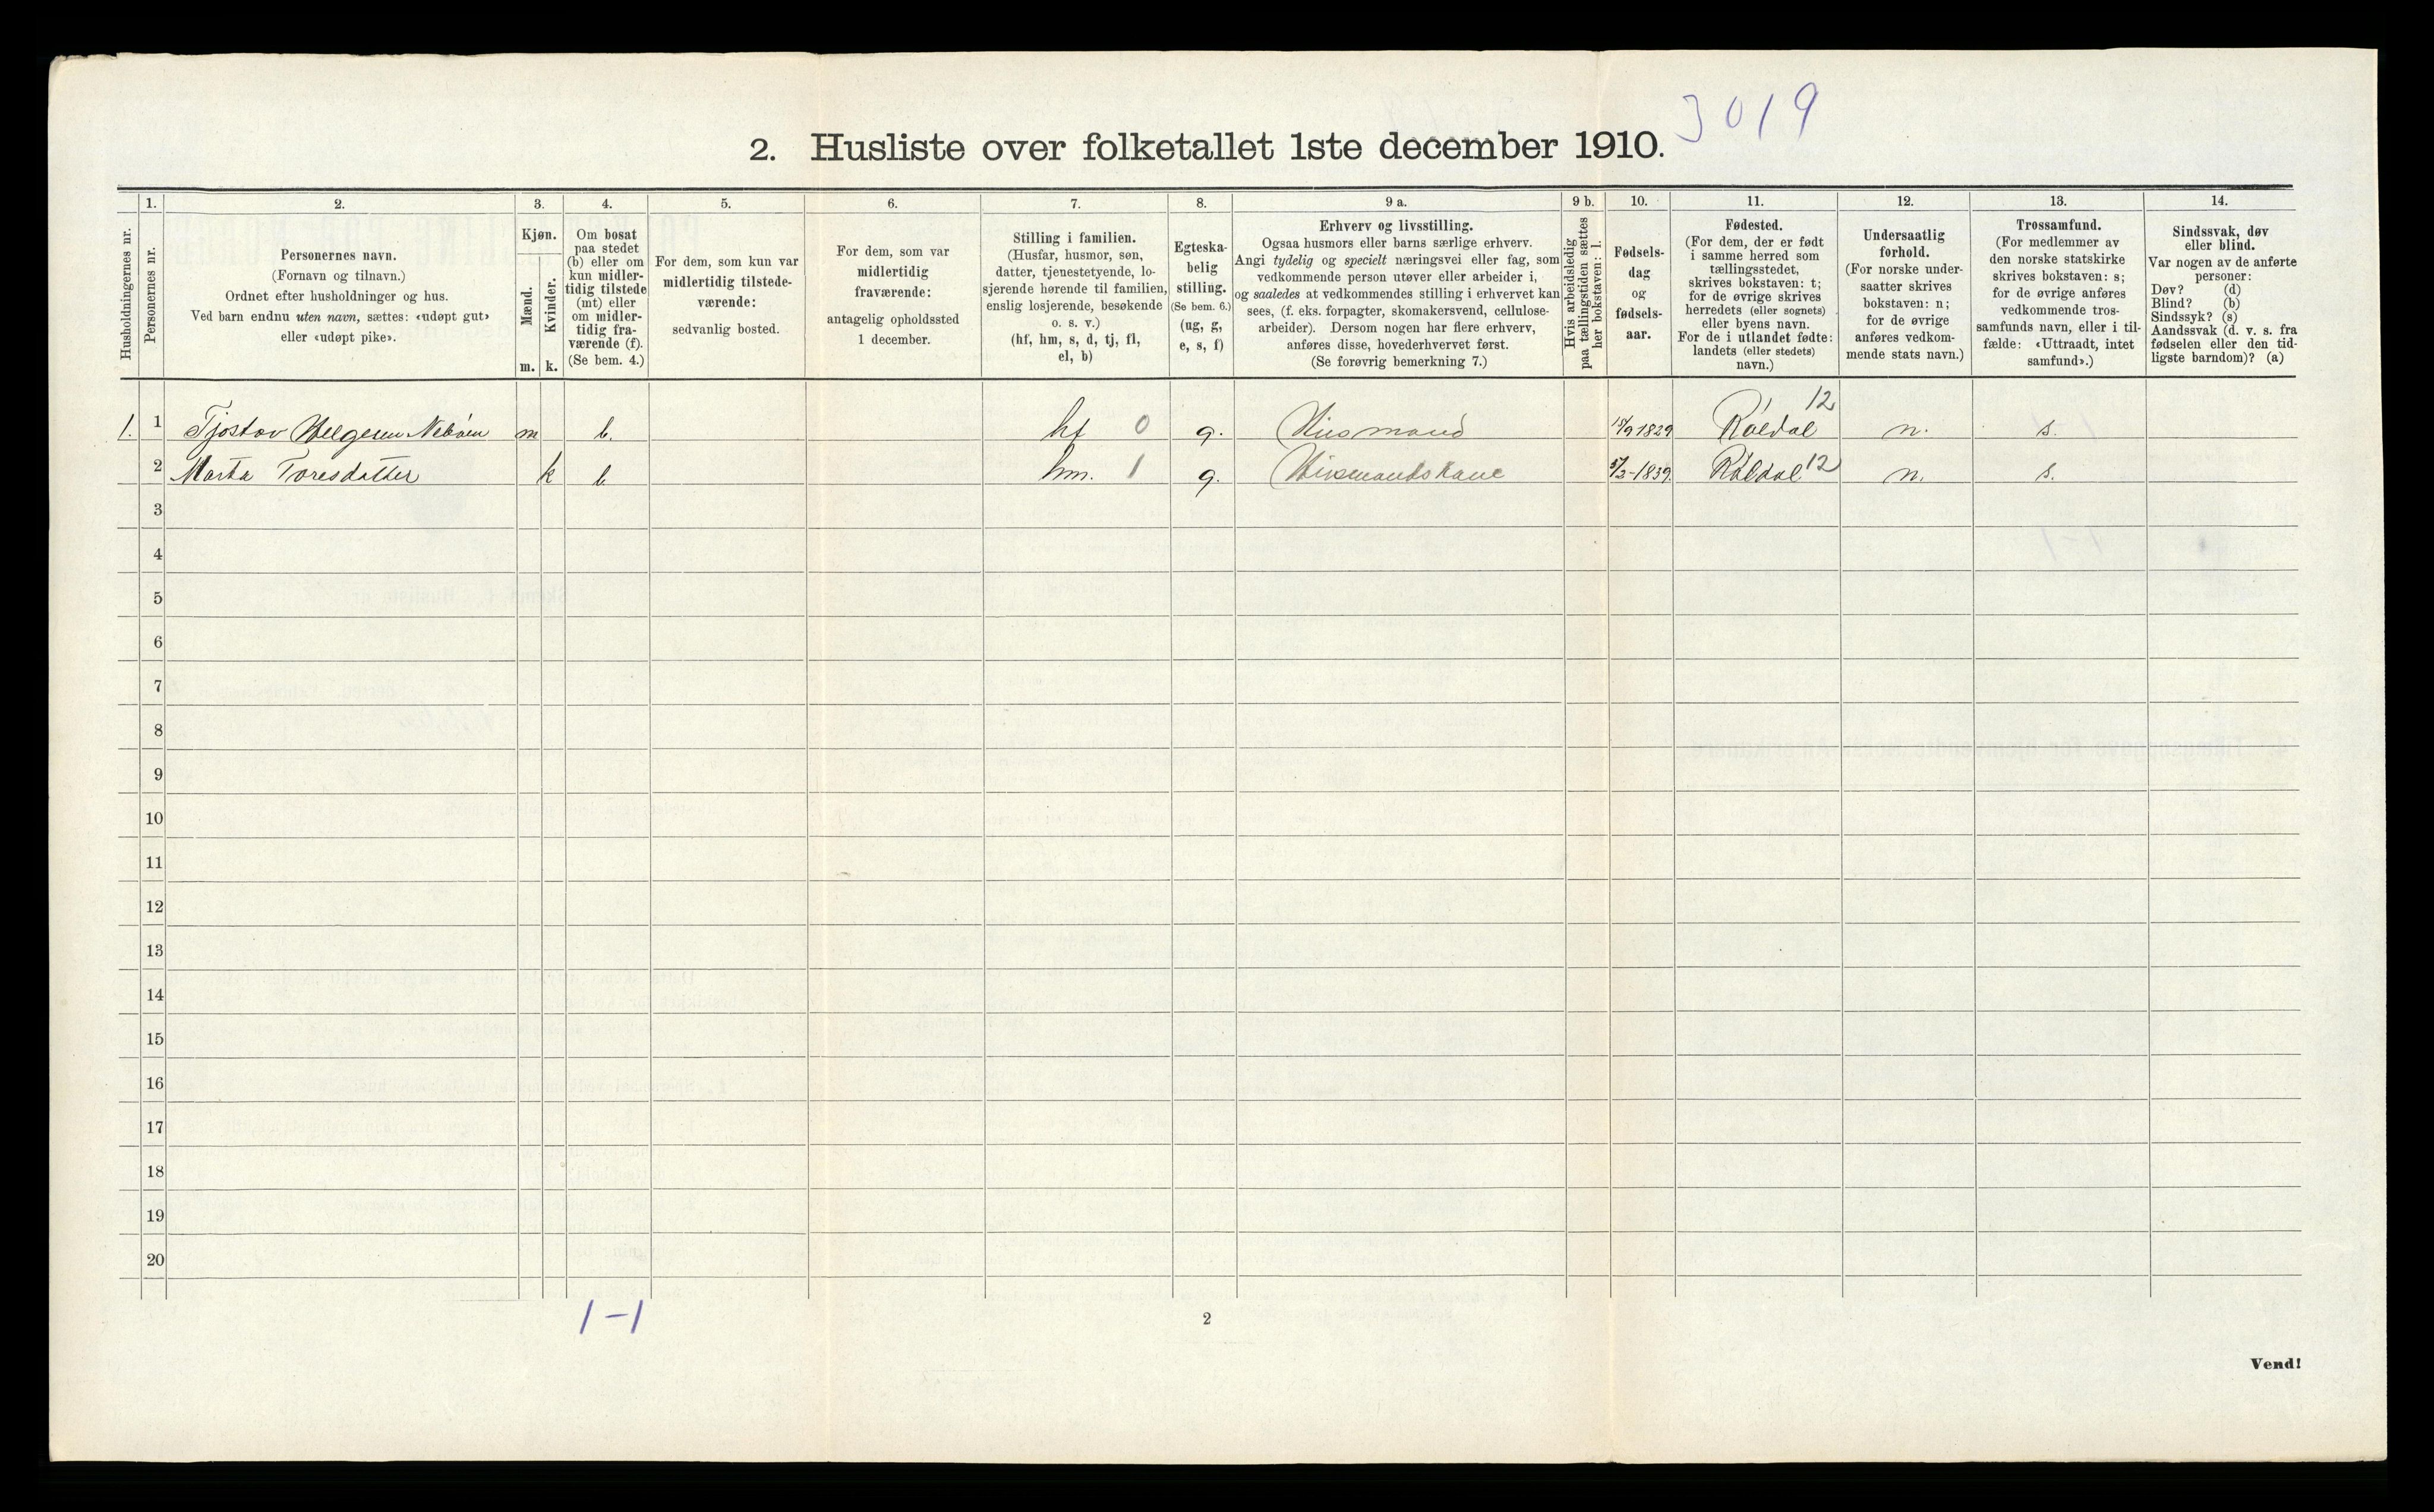 3019
2. Husliste over folketallet 1ste december 1910.
Husholdningernes nr.
1.
Personernes nr.
2.
Personernes navn.
(Fornavn og tilnavn.)
Ordnet efter husholdninger og hus.
Ved barn endnu uten navn, sættes: «udøpt gut»
eller «udøpt pike».
3.
Kjøn.
Mænd.
Kvinder.
m. k.
4.
Om bosat
paa stedet
(b) eller om
kun midler-
tidig tilstede
(mt) eller
om midler-
tidig fra-
værende (f).
(Se bem. 4.)
5.
For dem, som kun var
midlertidig tilstede-
værende:
sedvanlig bosted.
6.
For dem, som var
midlertidig
fraværende:
antagelig opholdssted
1 december.
7.
Stilling i familien.
(Husfar, husmor, søn,
datter, tjenestetyende, lo-
sjerende hørende til familien,
enslig losjerende, besøkende
o. s. v.)
(hf, hm, s, d, tj, fl,
el, b)
8.
Egteska-
belig
stilling.
(Se bem. 6.)
(ug, g,
e, s, f)
9 a.
Erhverv og livsstilling.
Ogsaa husmors eller barns særlige erhverv.
Angi tydelig og specielt næringsvei eller fag, som
vedkommende person utøver eller arbeider i,
og saaledes at vedkommendes stilling i erhvervet kan
sees, (f. eks. forpagter, skomakersvend, cellulose-
arbeider). Dersom nogen har flere erhverv,
anføres disse, hovederhvervet først.
(Se forøvrig bemerkning 7.)
9 b.
Hvis arbeidsledig
paa tællingstiden sættes
her bokstaven: l.
10.
Fødsels-
dag
og
fødsels-
aar.
11.
Fødested.
(For dem, der er født
i samme herred som
tællingsstedet,
skrives bokstaven: t;
for de øvrige skrives
herredets (eller sognets)
eller byens navn.
For de i utlandet fødte:
landets (eller stedets)
navn.)
12.
Undersaatlig
forhold.
(For norske under-
saatter skrives
bokstaven: n;
for de øvrige
anføres vedkom-
mende stats navn.)
13.
Trossamfund.
(For medlemmer av
den norske statskirke
skrives bokstaven: s;
for de øvrige anføres
vedkommende tros-
samfunds navn, eller i til-
fælde: «Uttraadt, intet
samfund».)
14.
Sindssvak, døv
eller blind.
Var nogen av de anførte
personer:
Døv? (d)
Blind? (b)
Sindssyk? (s)
Aandssvak (d. v. s. fra
fødselen eller den tid-
ligste barndom)? (a)
1. 1 Tjostov Helgesen m b. hf 0 g. Husmand 1829 Røldal 12 n. s.
2 Marta Toresdatter k b hm. 1 g. Husmandskone 1839. Røldal 12 n. s.
3
4
5
6
7
8
9
10
11
12
13
14
15
16
17
18
19
20
1-1
2
Vend!